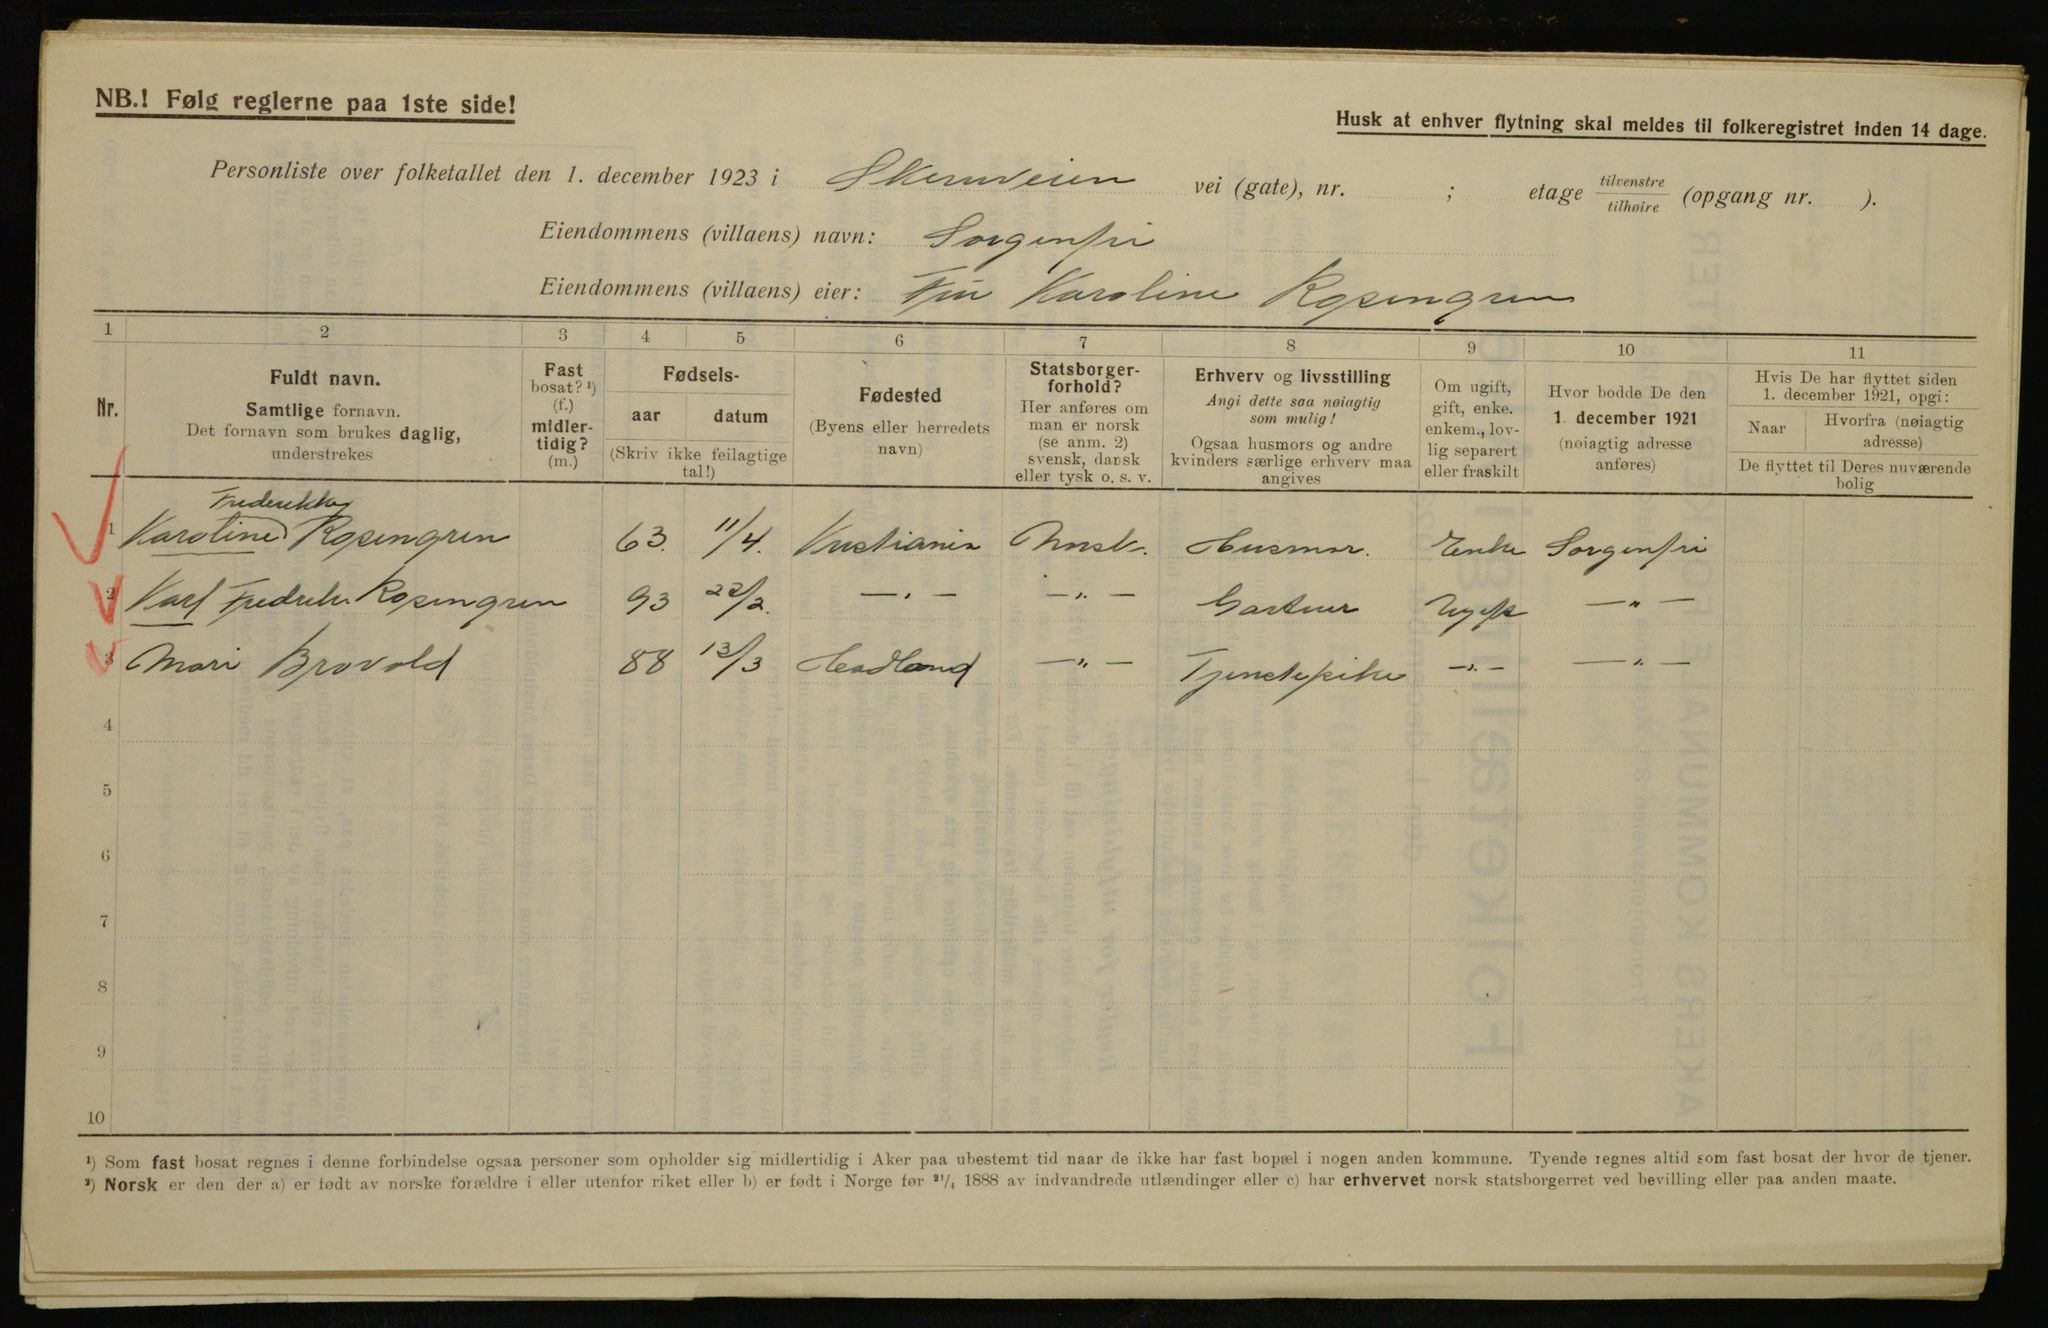 NB.! Følg reglerne paa 1ste side!
Husk at enhver flytning skal meldes til folkeregistret inden 14 dage.
Personliste over folketallet den 1. december 1923 i Skernveien vei (gate), nr. ; etage tilvenstre tilhøire (opgang nr. ).
Eiendommens (villaens) navn: Sorgenfri
Eiendommens (villaens) eier: Fru Karoline Rosengren
1 2 3 4 5 6 7 8 9 10 11
Nr.
Fuldt navn.
Samtlige fornavn.
Det fornavn som brukes daglig,
understrekes
Fast
bosat? ¹)
(f.)
midler-
tidig?
(m.)
Fødsels-
aar datum
(Skriv ikke feilagtige
tal!)
Fødested
(Byens eller herredets
navn)
Statsborger-
forhold?
Her anføres om
man er norsk
(se anm. 2)
svensk, dansk
eller tysk o. s. v.
Erhverv og livsstilling
Angi dette saa nøiagtig
som mulig!
Ogsaa husmors og andre
kvinders særlige erhverv maa
angives
Om ugift,
gift, enke.
enkem., lov-
lig separert
eller fraskilt
Hvor bodde De den
1. december 1921
(nøiagtig adresse
anføres)
Hvis De har flyttet siden
1. december 1921, opgi:
Naar Hvorfra (nøiagtig
adresse)
De flyttet til Deres nuværende
bolig
Frederikke
1 Karoline Rosengren 63. 11/4. Kristiania Norsk. Husmor. Enke Sorgenfri
2 Karl Fredrik Rosengren 93 22/2. —„— —„— Gartner Ugift —„—
3 Mari Brovold 88 13/3 Hadland —„— Tjenstepike —„— —„—
4
5
6
7
8
9
10
¹) Som fast bosat regnes i denne forbindelse ogsaa personer som opholder sig midlertidig i Aker paa ubestemt tid naar de ikke har fast bopæl i nogen anden kommune. Tyende regnes altid som fast bosat der hvor de tjener.
²) Norsk er den der a) er født av norske forældre i eller utenfor riket eller b) er født i Norge før ²¹/₄ 1888 av indvandrede utlændinger eller c) har erhvervet norsk statsborgerret ved bevilling eller paa anden maate.